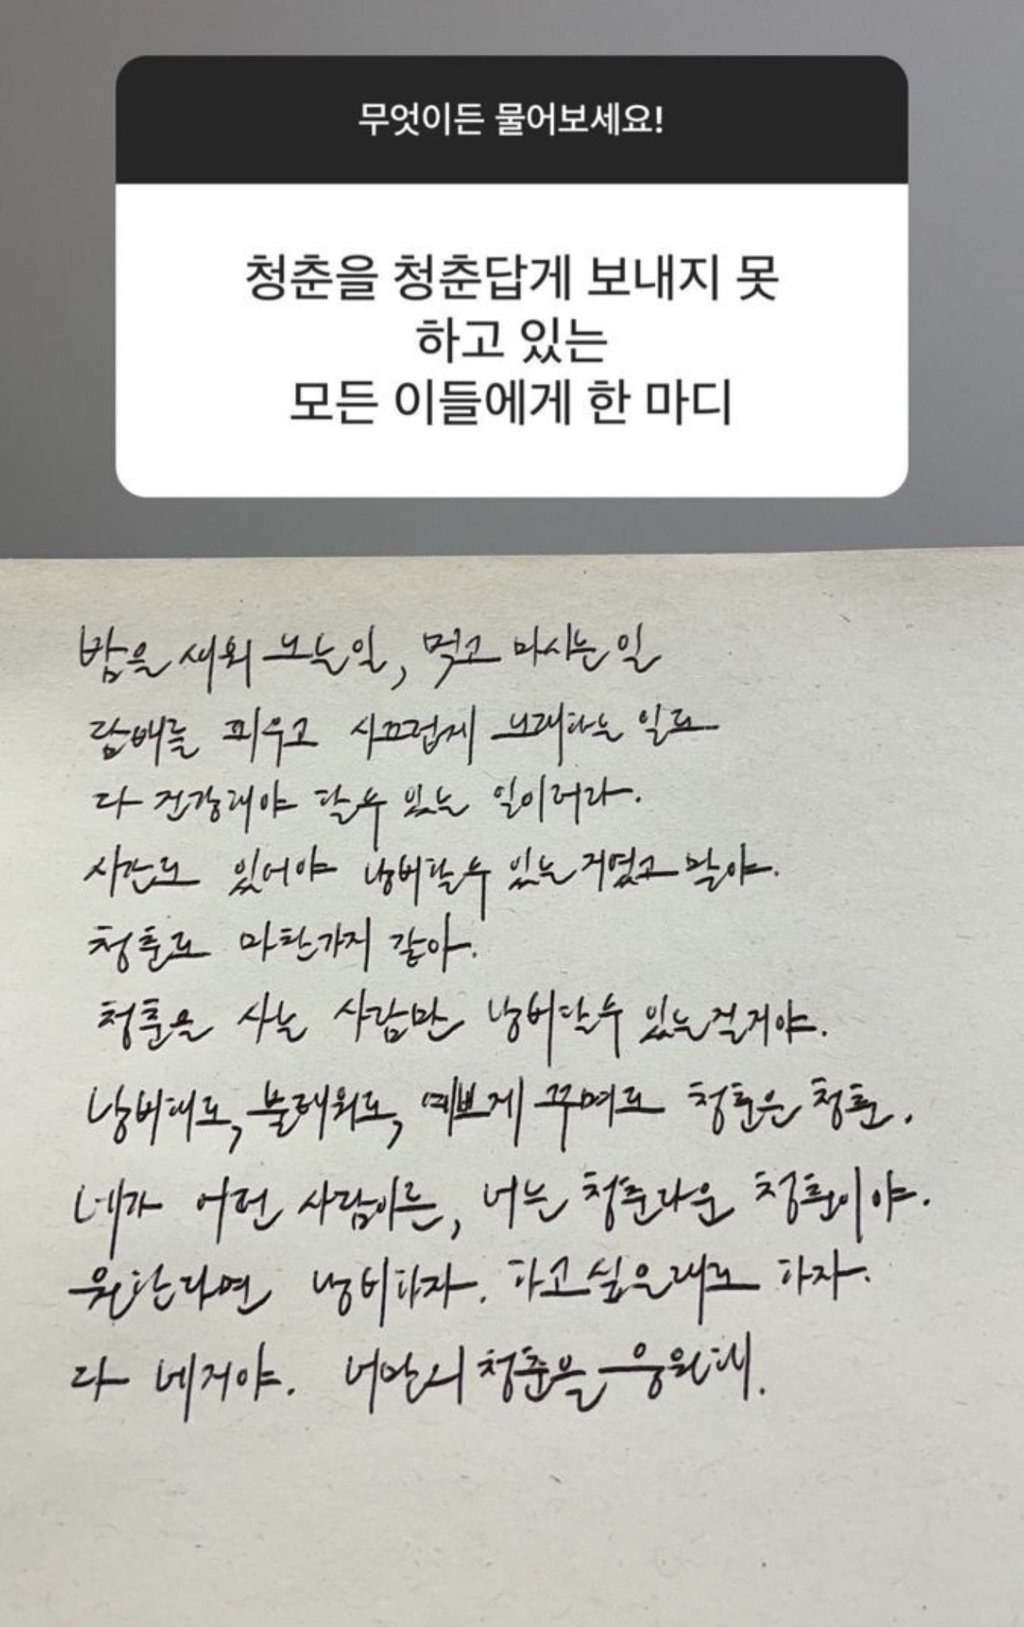 무엇이든 물어보세요!
청춘을 청춘답게 보내지 못
하고 있는
모든 이들에게 한 마디
밤을 새워 노는 일, 먹고 마시는 일
담배를 피우고 시끄럽게 노래하는 일도
다 건강해야 할 수 있는 일이더라.
시간도 있어야 낭비할 수 있는 거였고 말야.
청춘도 마찬가지 같아.
청춘을 사는 사람만 낭비할 수 있는 걸 거야.
낭비해도, 불태워도, 예쁘게 꾸며도 청춘은 청춘.
네가 어떤 사람이든, 너는 청춘다운 청춘이야.
원한다면 낭비하자. 하고 싶은 대로 하자.
다 네 거야. 너만의 청춘을 응원해.